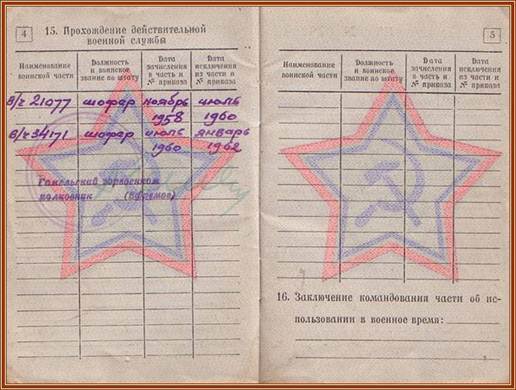 4
15. Прохождение действительной
военной службы
Наименование
воинской части
Должность
и воинское
звание по штату
Дата
зачисления
в часть и
№ приказа
Дата
исключения
из части и
№ приказа
В/ч 21077 шофер ноябрь июль
1958 1960
В/ч 34171 шофер июль январь
1960 1962
Гомельский горвоенком
полковник (Ефремов)
5
Наименование
воинской части
Должность
и воинское
звание по штату
Дата
зачисления
в часть и
№ приказа
Дата
исключения
из части и
№ приказа
16. Заключение командования части об ис-
пользовании в военное время: